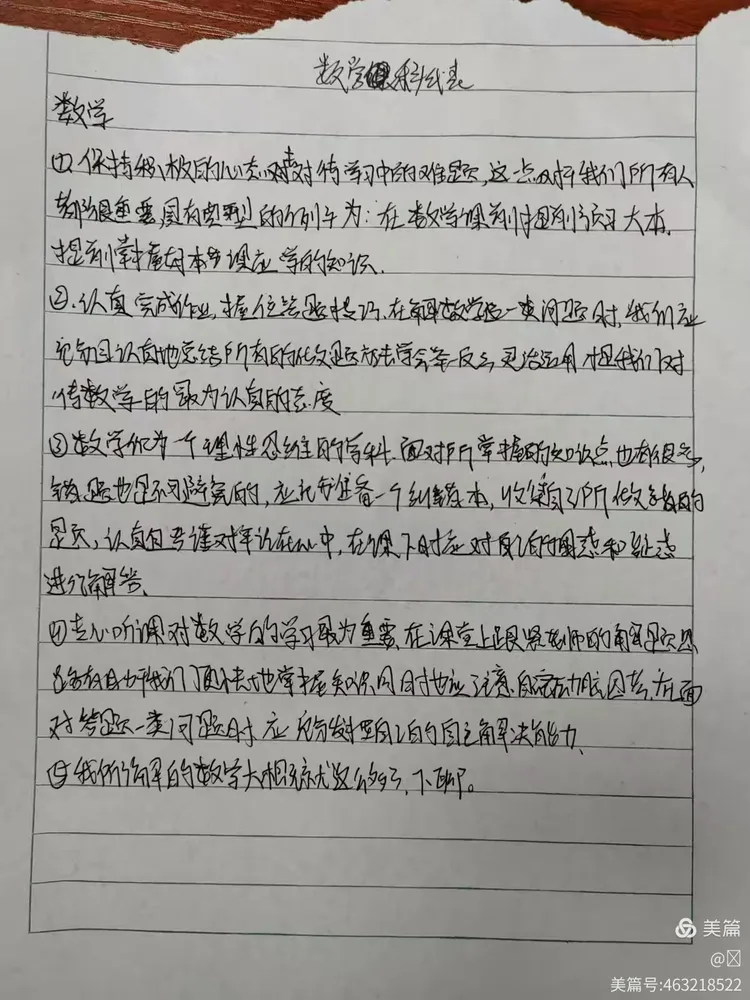 数学科代表
数学
①.保持积极的心态对待学习中的难题,这一点对于我们所有人
都很重要,具有典型的例子为:在数学课前提前预习大本,
提前掌握好本节课应学的知识.
②.认真完成作业,握住答题技巧.在解数学这一类问题时,我们应
充分且认真地总结所有的做题方法学会举一反三,灵活运用才是我们对
待数学的最为认真的态度
③数学作为一个理性思维的学科.面对所掌握的知识点也有很多,
错题也是不可避免的,应准备一个纠错本,收集自己所做错的
题,认真且考谨对牢记在心中,在课下时应对自己的困惑和疑惑
进行解答.
④专心听课对数学的学习最为重要.在课堂上跟紧老师的解题思
路有助于我们更快地掌握知识同时也应注意自主,因此,在面
对答题一类问题时,应充分发挥自己的自主解决能力.
⑤我所理解的数学大概就这么多了,下听。
美篇
美篇号:463218522